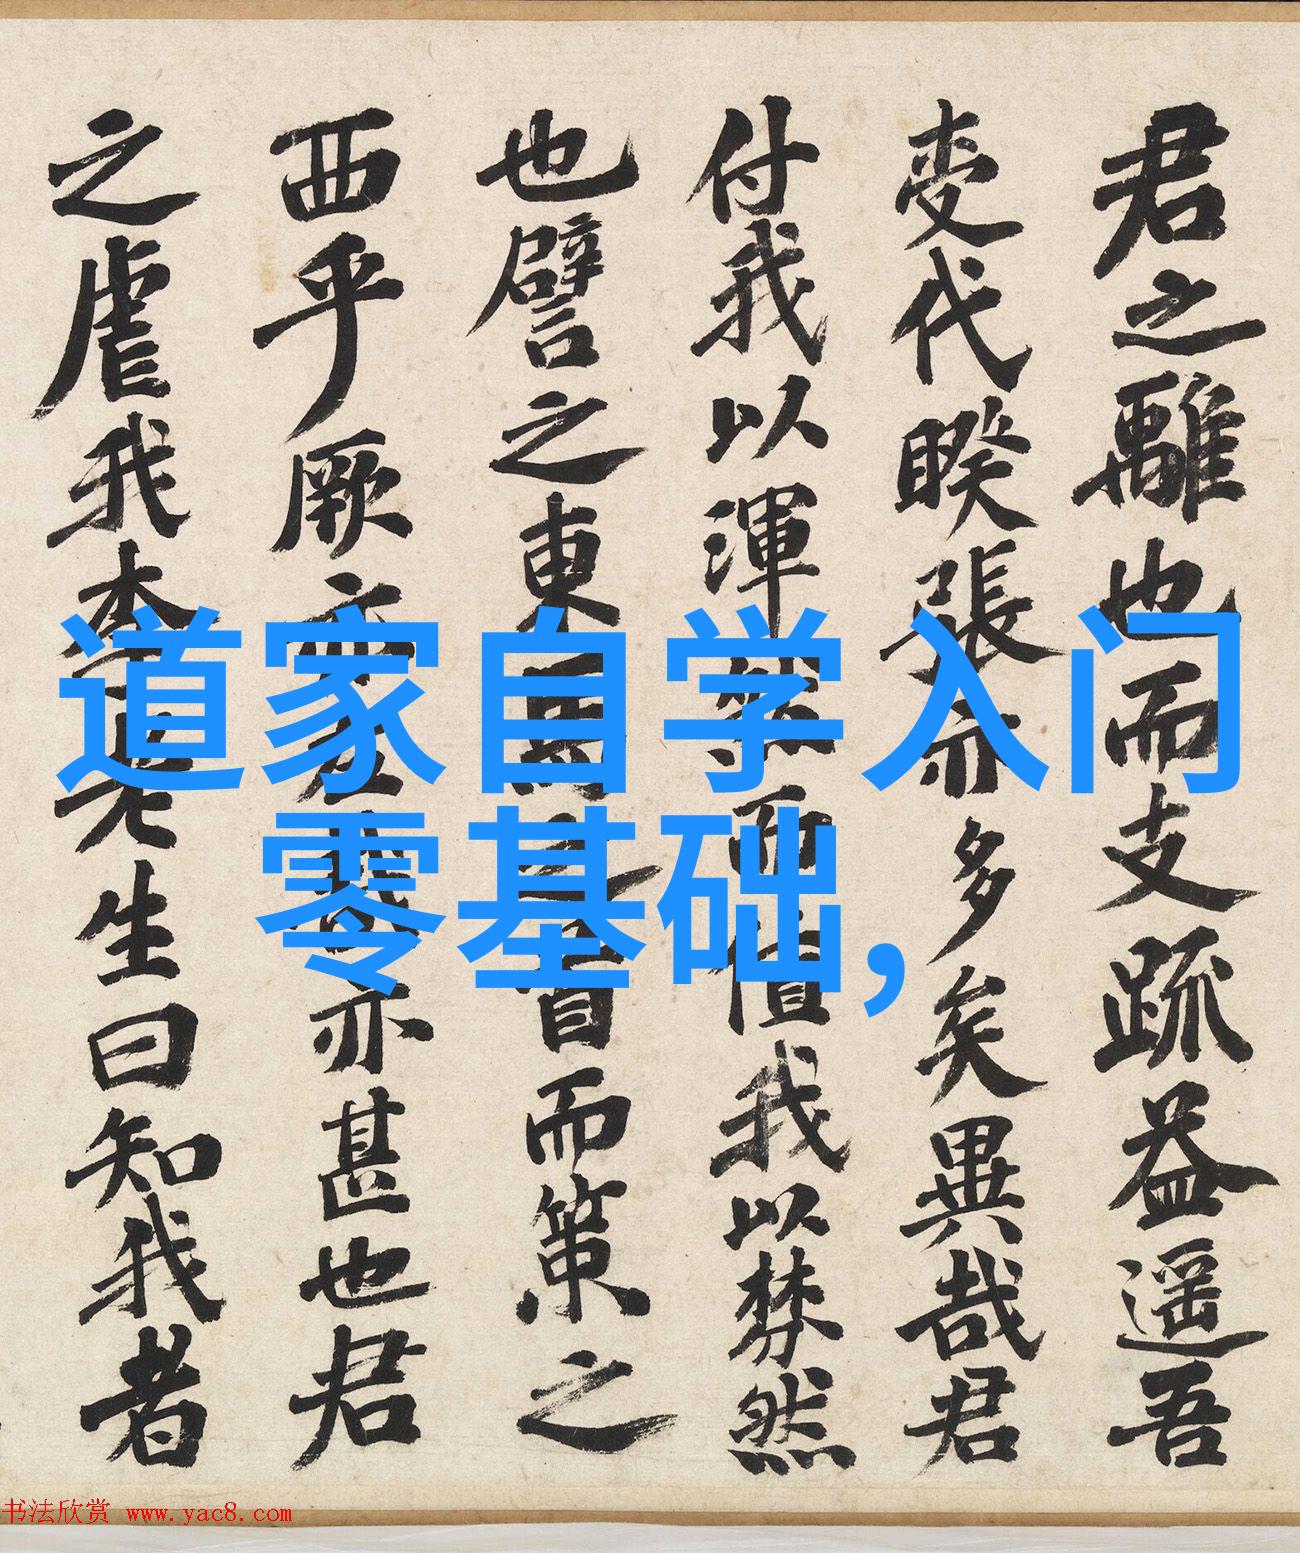 道家自学入门
零基础,
君之離也而支疏益遥吾
代睽張亦多矣異哉君
付我以渾然而值我以棼然
也譬之東首而策之
西乎厥亦甚也君
之虐我生曰知我者
书法欣赏 www.yac8.com